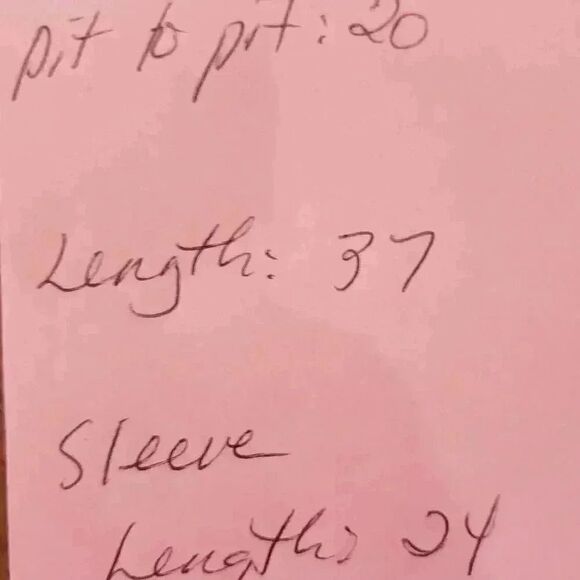 pit to pit: 20
Length: 37
Sleeve
Length: 24